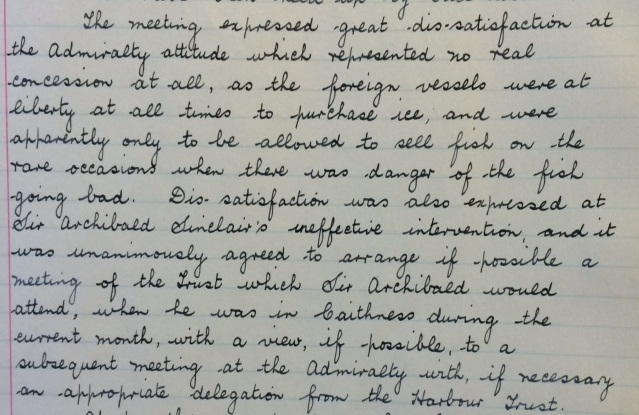 The meeting expressed great dis-satisfaction at
the Admiralty attitude which represented no real
concession at all, as the foreign vessels were at
liberty at all times to purchase ice, and were
apparently only to be allowed to sell fish on the
rare occasions when there was danger of the fish
going bad. Dis-satisfaction was also expressed at
Sir Archibald Sinclair's ineffective intervention, and it
was unanimously agreed to arrange if possible a
meeting of the Trust which Sir Archibald would
attend, when he was in Caithness during the
current month, with a view, if possible, to a
subsequent meeting at the Admiralty with, if necessary
an appropriate delegation from the Harbour Trust.